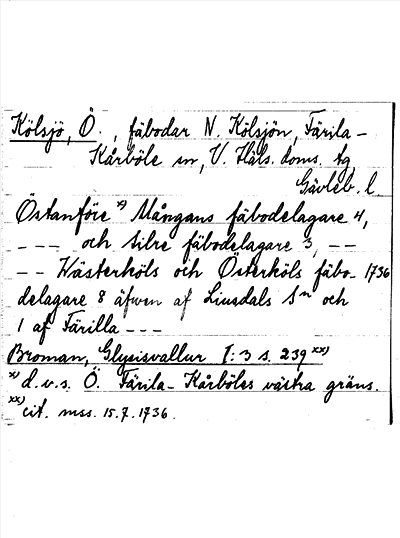 Kölsjö, Ö., fäbodar N. Kölsjön, Färila-
Kårböle sn, V. Häls. doms. tg
Gävleb. l.
Östanföre x) Mångans fäbodelagare 4,
- - - och Silre fäbodelagare 3, - -
- - Wästerhöls och Österköls fäbo- 1736
delagare 8 äfwen af Liusdals Sn och
1 af Färilla - - -
Broman, Glysisvallur I:3 s. 239 xx)
x) d.v.s. Ö. Färila-Kårböles västra gräns.
xx) cit. mss. 15.7.1736.